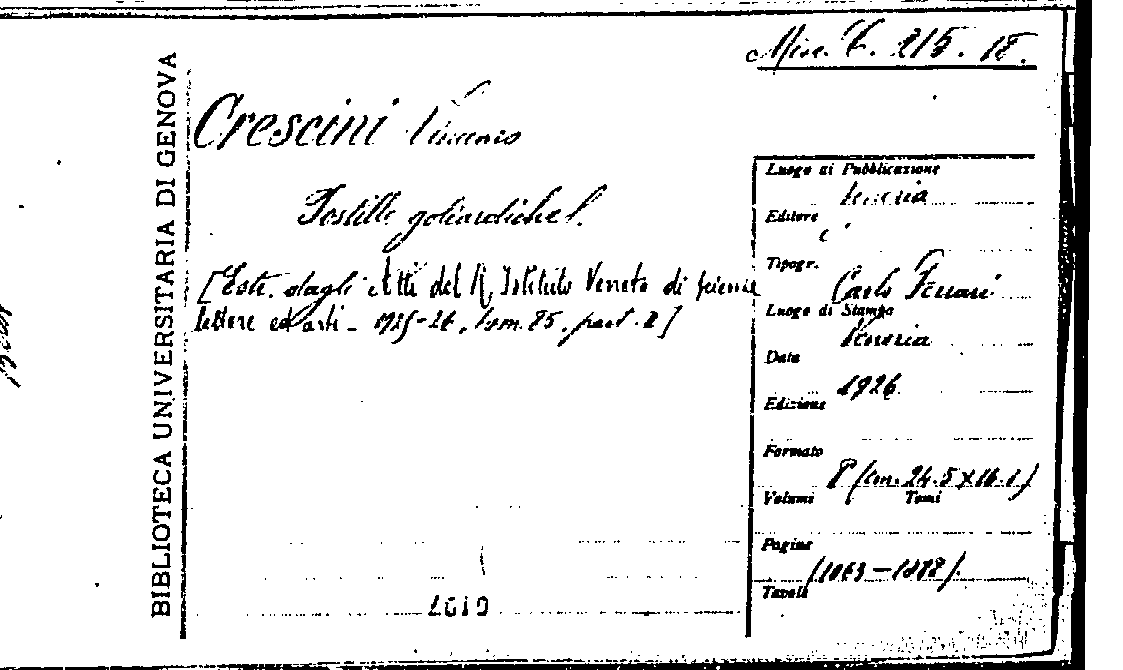 Misc. C. 215. 18.
BIBLIOTECA UNIVERSITARIA DI GENOVA
Crescini Vincenzo
Postille goliardiche.
[Estr. dagli Atti del R. Istituto Veneto di scienze
lettere ed arti - 1925-26, tom. 85, part. 2]
Luogo di Pubblicazione
Venezia
Editore
Tipogr.
Carlo Ferrari
Luogo di Stampa
Venezia
Data
1926
Edizione
Formato
8° (cm. 24.5 x 16.1)
Volumi Tomi
Pagine
(1063-1088).
Tavole